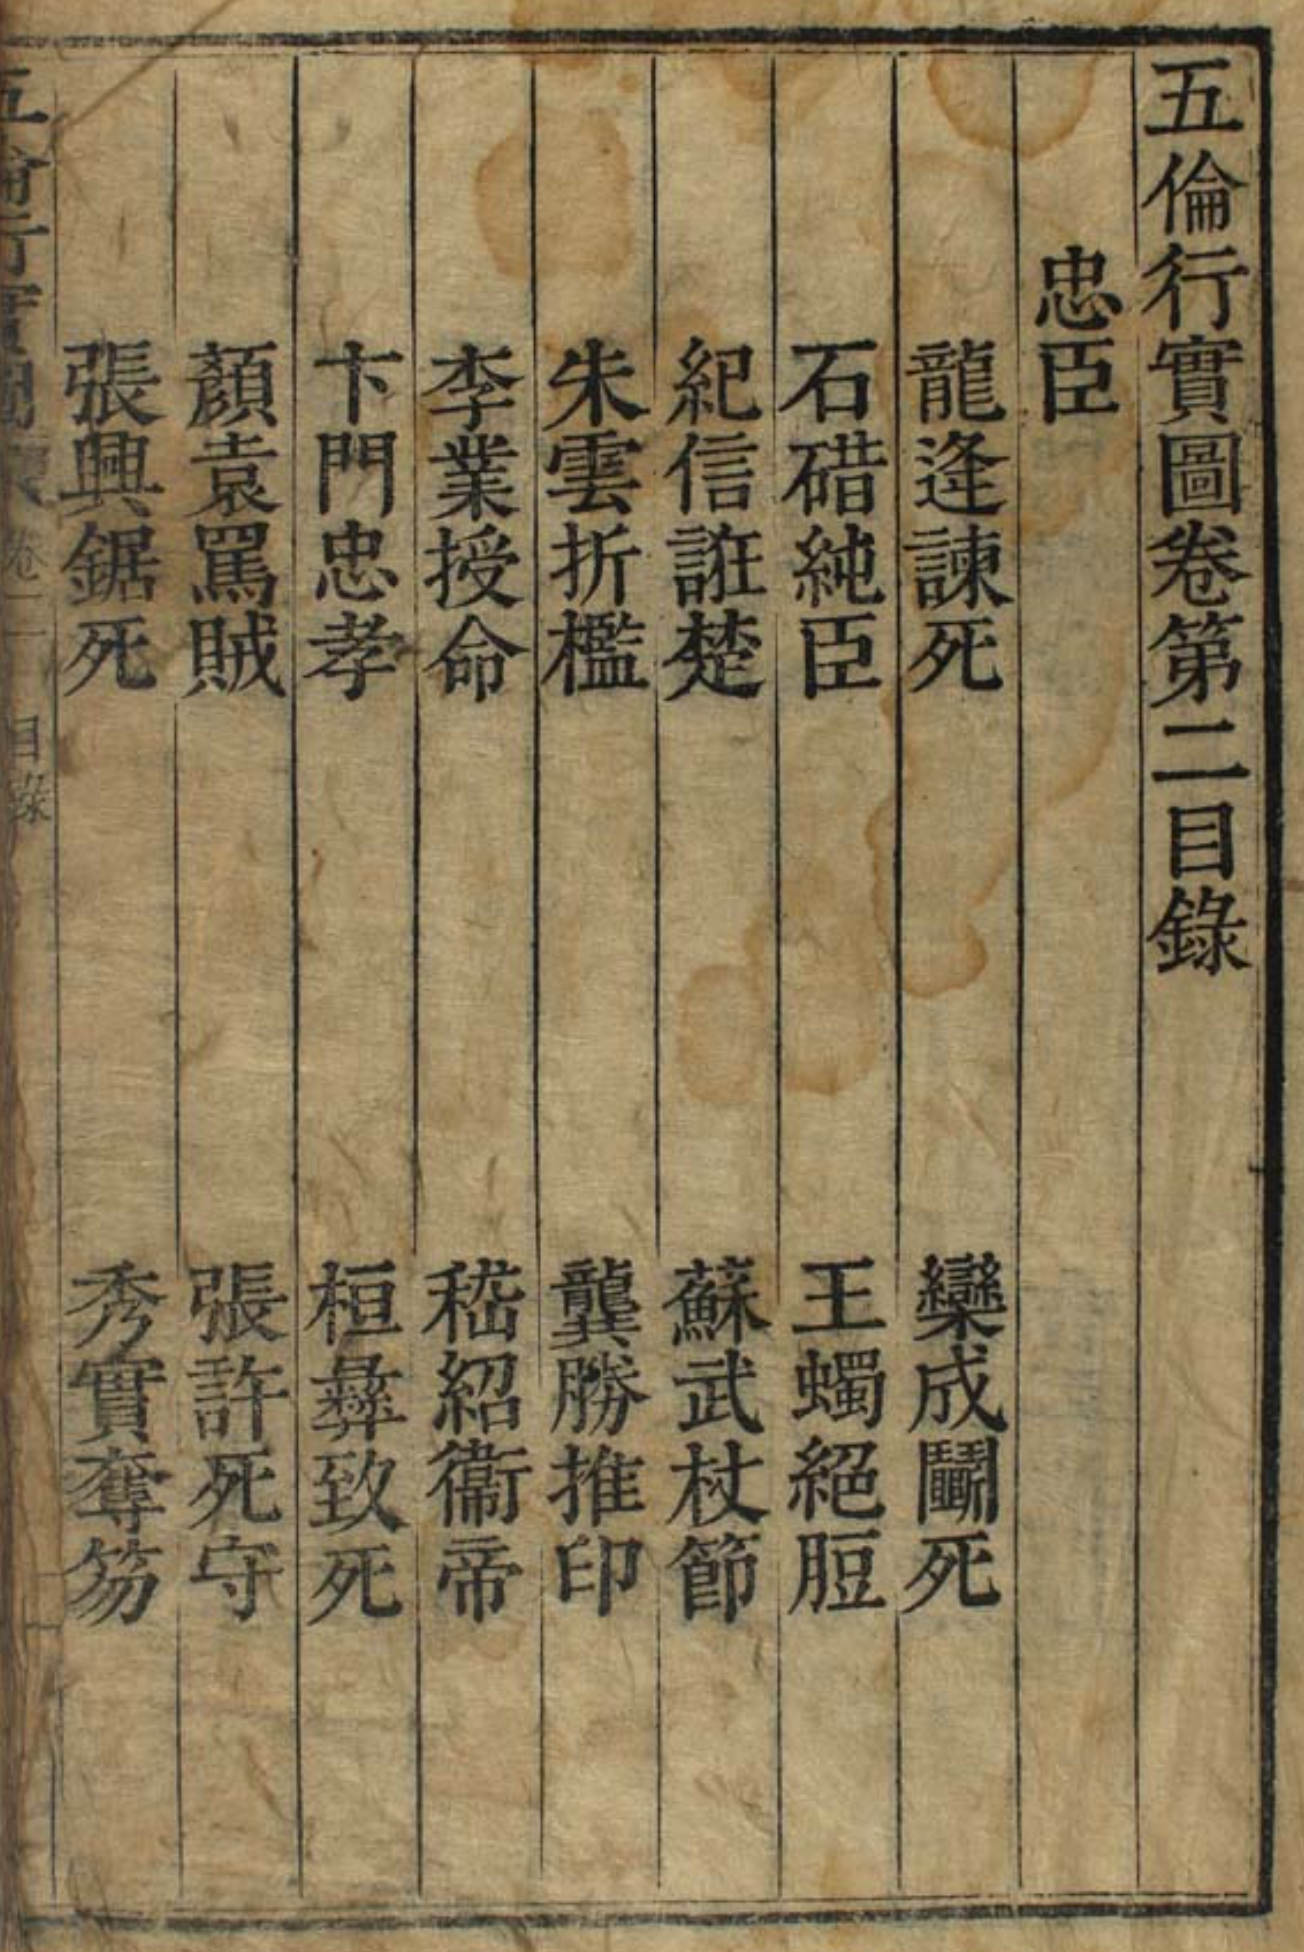 五倫行實圖卷第二目錄
忠臣
龍逄諫死 欒成鬬死
石碏純臣 王蠋絕脰
紀信誑楚 蘇武杖節
朱雲折檻 龔勝推印
李業授命 嵇紹衞帝
卞門忠孝 桓彝致死
顏袁罵賊 張許死守
張興鋸死 秀實奪笏
五倫行實圖 卷二 目錄